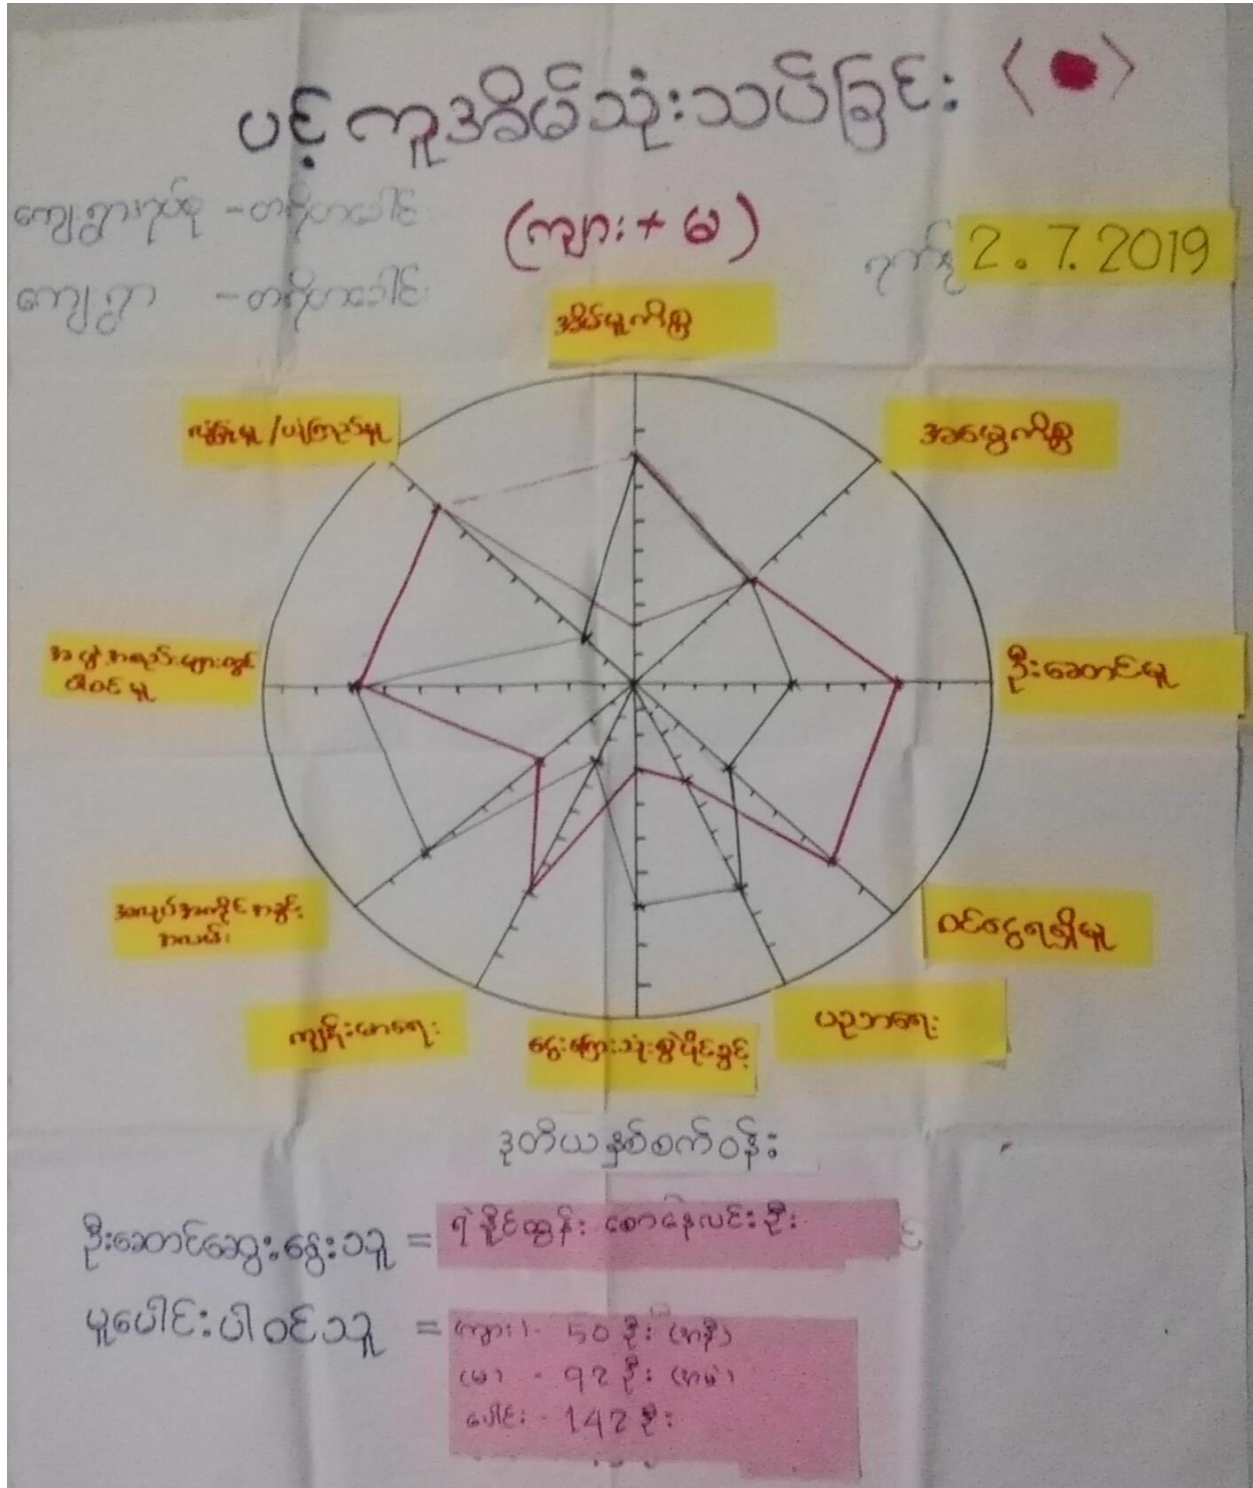 ပင့်ကူအိမ်သုံးသပ်ခြင်း
ကျေးရွာအုပ်စု -
(ကျား + မ)
ရက်စွဲ 2.7.2019
ကျေးရွာ -
အိမ်မှုကိစ္စ
အမွေကိစ္စ
ဦးဆောင်မှု
ဝင်ငွေရရှိမှု
ပညာရေး
ငွေကြေးသုံးစွဲပိုင်ခွင့်
ကျန်းမာရေး
အလုပ်အကိုင်အခွင့်
အလမ်း
အဖွဲ့အစည်းများတွင်
ပါဝင်မှု
လုံခြုံမှု / ယုံကြည်မှု
ဒုတိယနှစ်စက်ဝန်း
ဦးဆောင်ဆွေးနွေးသူ = ရဲနိုင်ထွန်း စောနေလင်းဦး
စုပေါင်းပါဝင်သူ = ကျား - 50 ဦး
(မ) - 92 ဦး
ပေါင်း - 142 ဦး